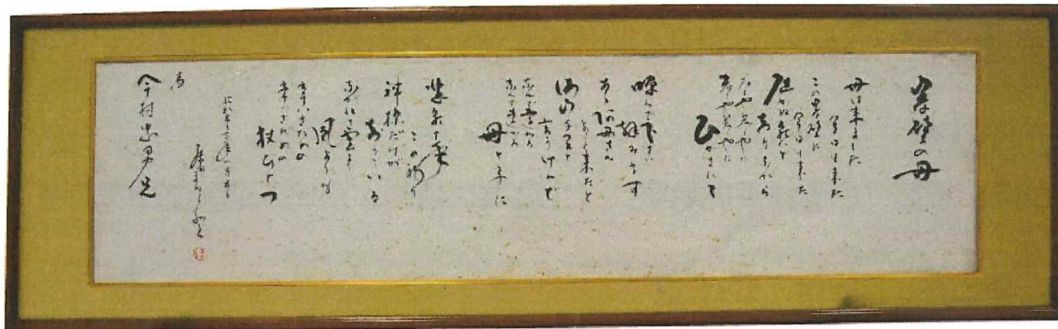 岸壁の母
母は来ました
今日も来た
この岸壁に
今日も来た
届かぬ願いと
知りながら
もしやもしやに
もしやもしやに
ひかされて
呼んで下さい
拝みます
あゝ母さん
よく来たと
海山千里と
言うけれど
なんで遠かろ
なんで遠かろ
母と子に
悲願十年
この祈り
神様だけが
知っている
流れる雲より
風よりも
つらいさだめの
つらいさだめの
杖ひとつ
為
今村忠男兄